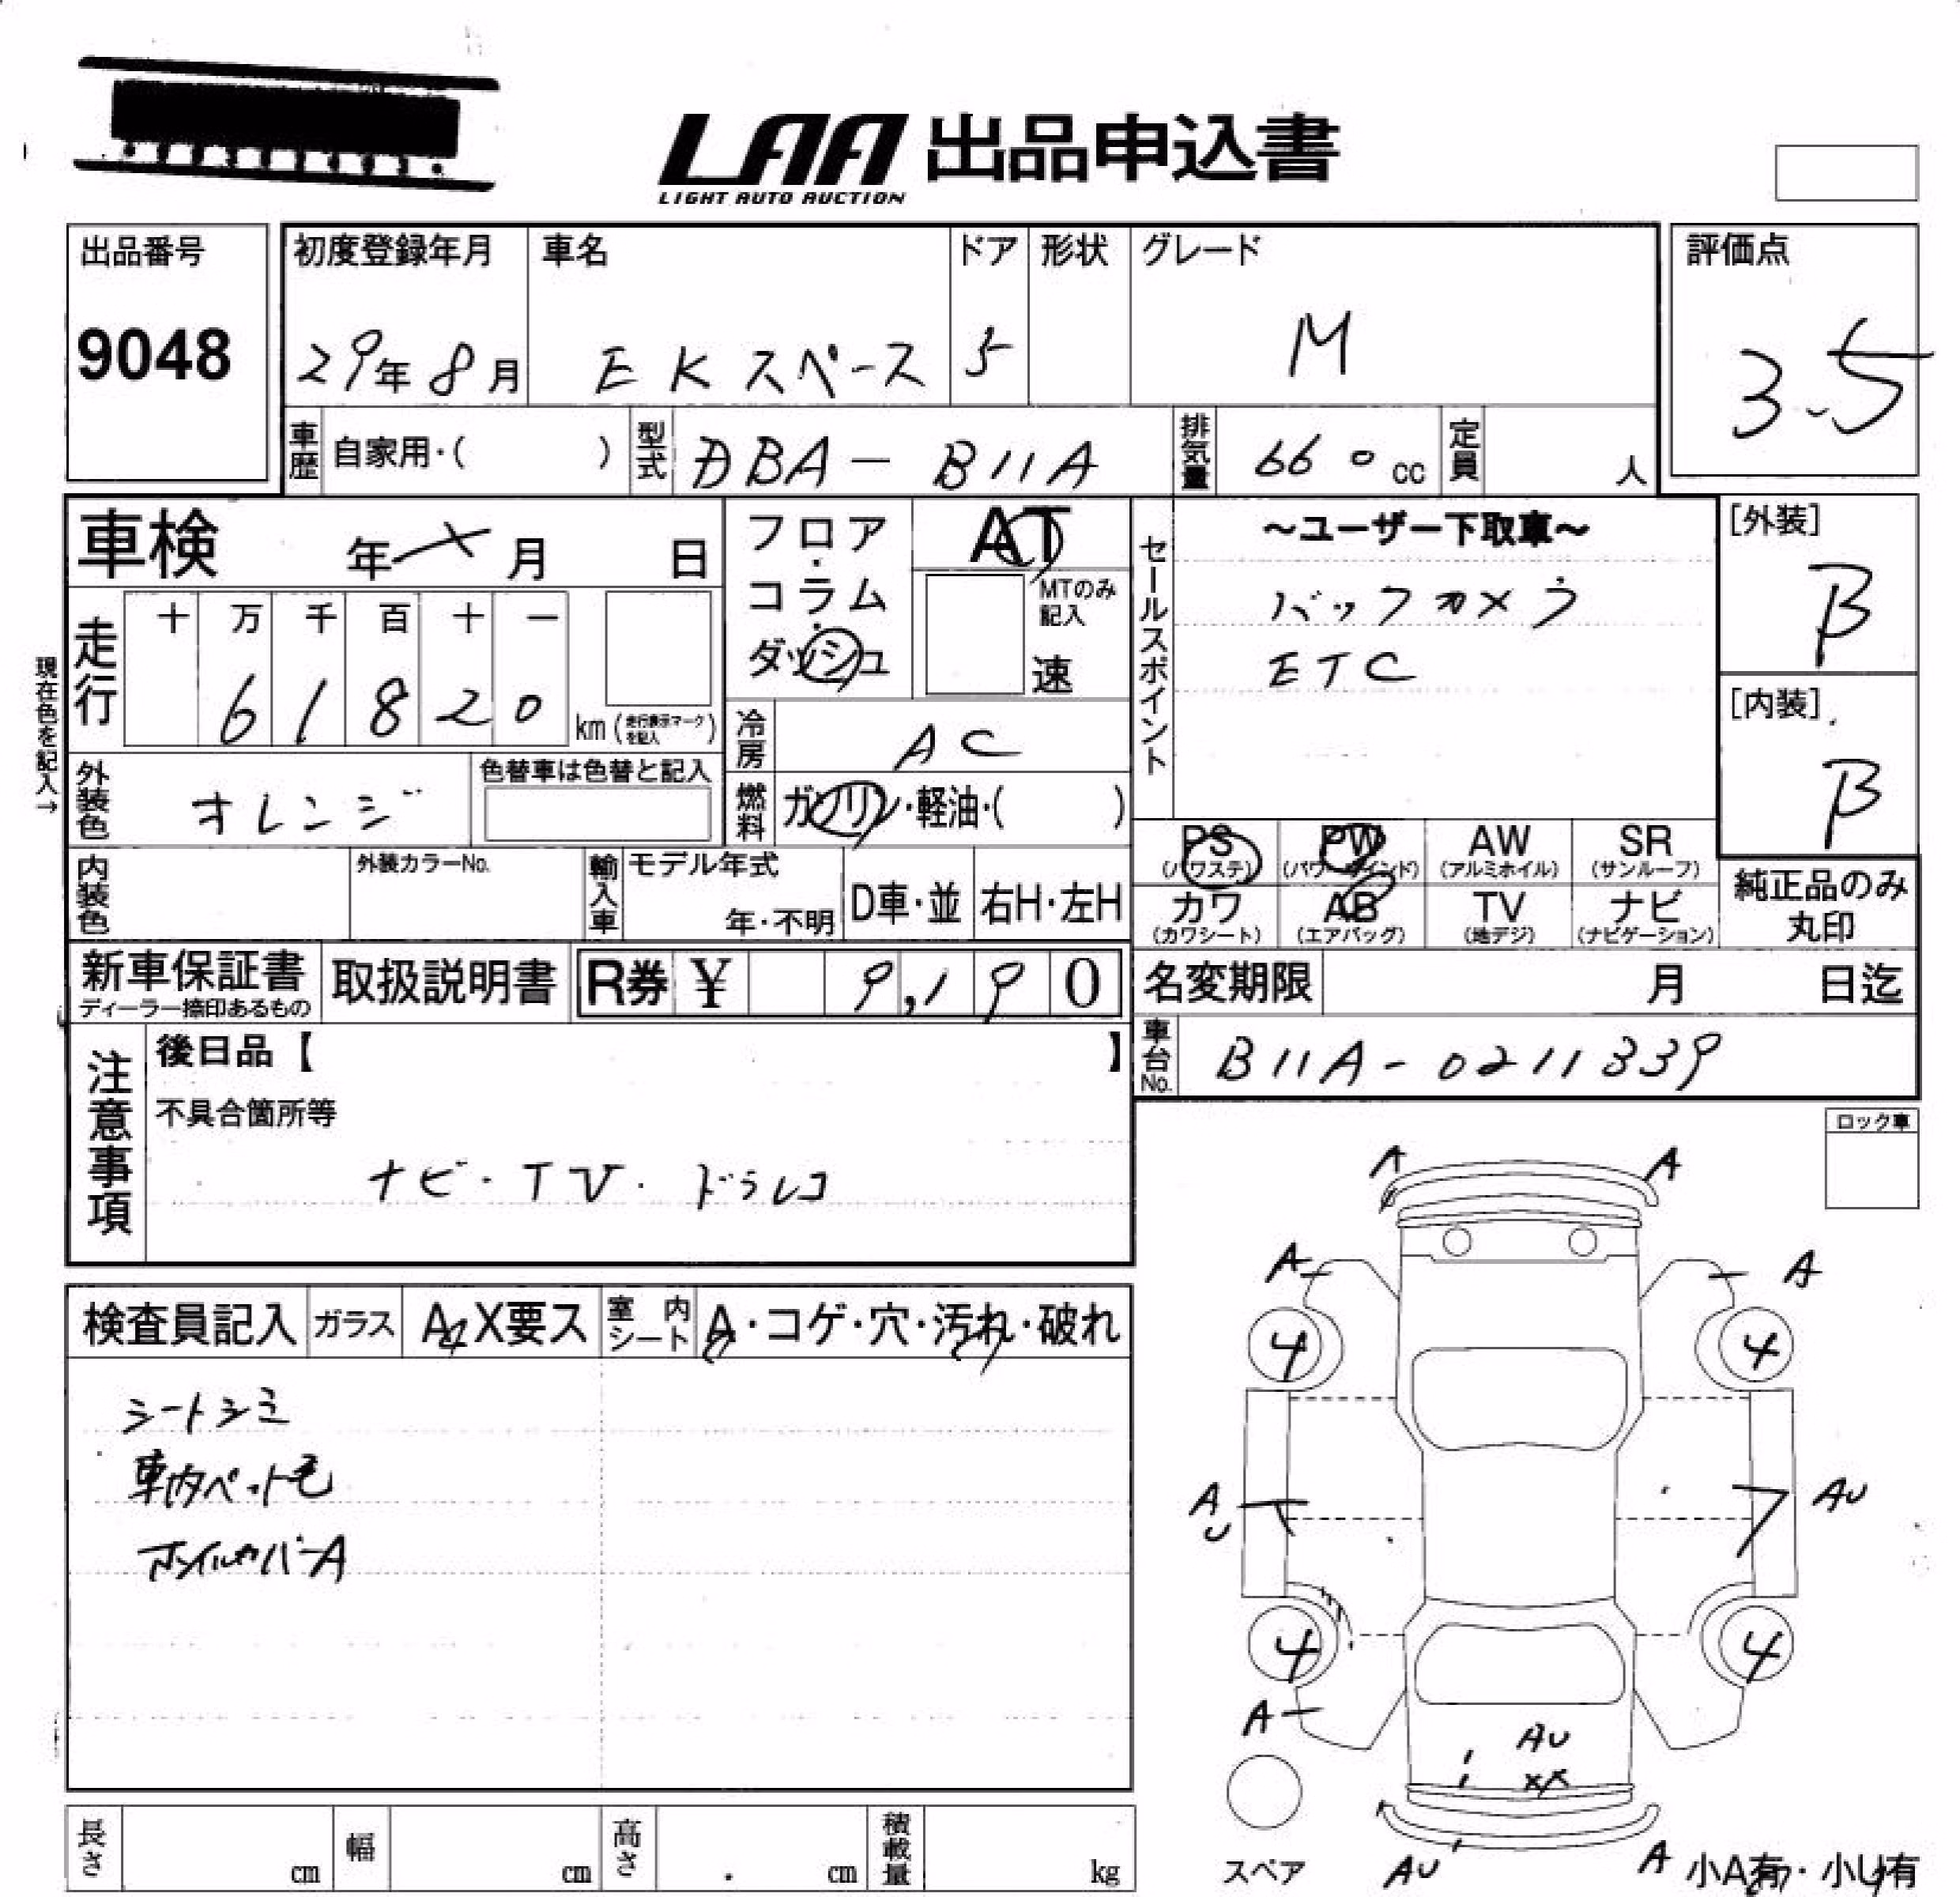 LAA 出品申込書
LIGHT AUTO AUCTION
出品番号
9048
初度登録年月
29年8月
車名
EKスペース
ドア
5
形状
グレード
M
評価点
3.5
車歴 自家用・( )
型式 DBA-B11A
排気量 660cc
定員 人
車検 年 月 日
フロア・コラム・ダッシュ
AT
MTのみ記入
速
セールスポイント
~ユーザー下取車~
バックカメラ
ETC
[外装]
B
[内装]
B
現在色を記入→
走行 十 万 千 百 十 一
61820 km (走行表示マークを記入)
冷房 AC
外装色 オレンジ
色替車は色替と記入
燃料 ガソリン・軽油・( )
内装色
外装カラーNo.
輸入車
モデル年式
年・不明
D車・並
右H・左H
PS (パワステ)
PW (パワーウインド)
AW (アルミホイル)
SR (サンルーフ)
カワ (カワシート)
AB (エアバッグ)
TV (地デジ)
ナビ (ナビゲーション)
純正品のみ丸印
新車保証書
ディーラー捺印あるもの
取扱説明書
R券 ¥ 9,190
名変期限 月 日迄
車台No. B11A-0211339
注意事項
後日品【 】
不具合箇所等
ナビ・TV・ドラレコ
ロック車
検査員記入
ガラス A X要ス
室内シート A・コゲ・穴・汚れ・破れ
シートシミ
車内ペット毛
ホイルカバーA
A A
A A
4 4
AU AU
4 4
A
AU
XX
AU A
スペア
小A有・小U有
長さ cm
幅 cm
高さ cm
積載量 kg